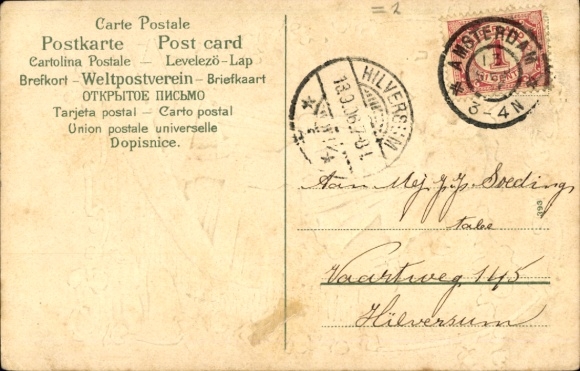 = 2
Carte Postale
Postkarte Post card
Cartolina Postale — Levelező-Lap
Brefkort - Weltpostverein - Briefkaart
ОТКРЫТОЕ ПИСЬМО
Tarjeta postal — Carto postal
Union postale universelle
Dopisnice.
AMSTERDAM
3-4N
1
CENT
HILVERSUM
18.9.06.7-8V
Aan Mej. J. J. Soeding,
Vaartweg 145
Hilversum
395